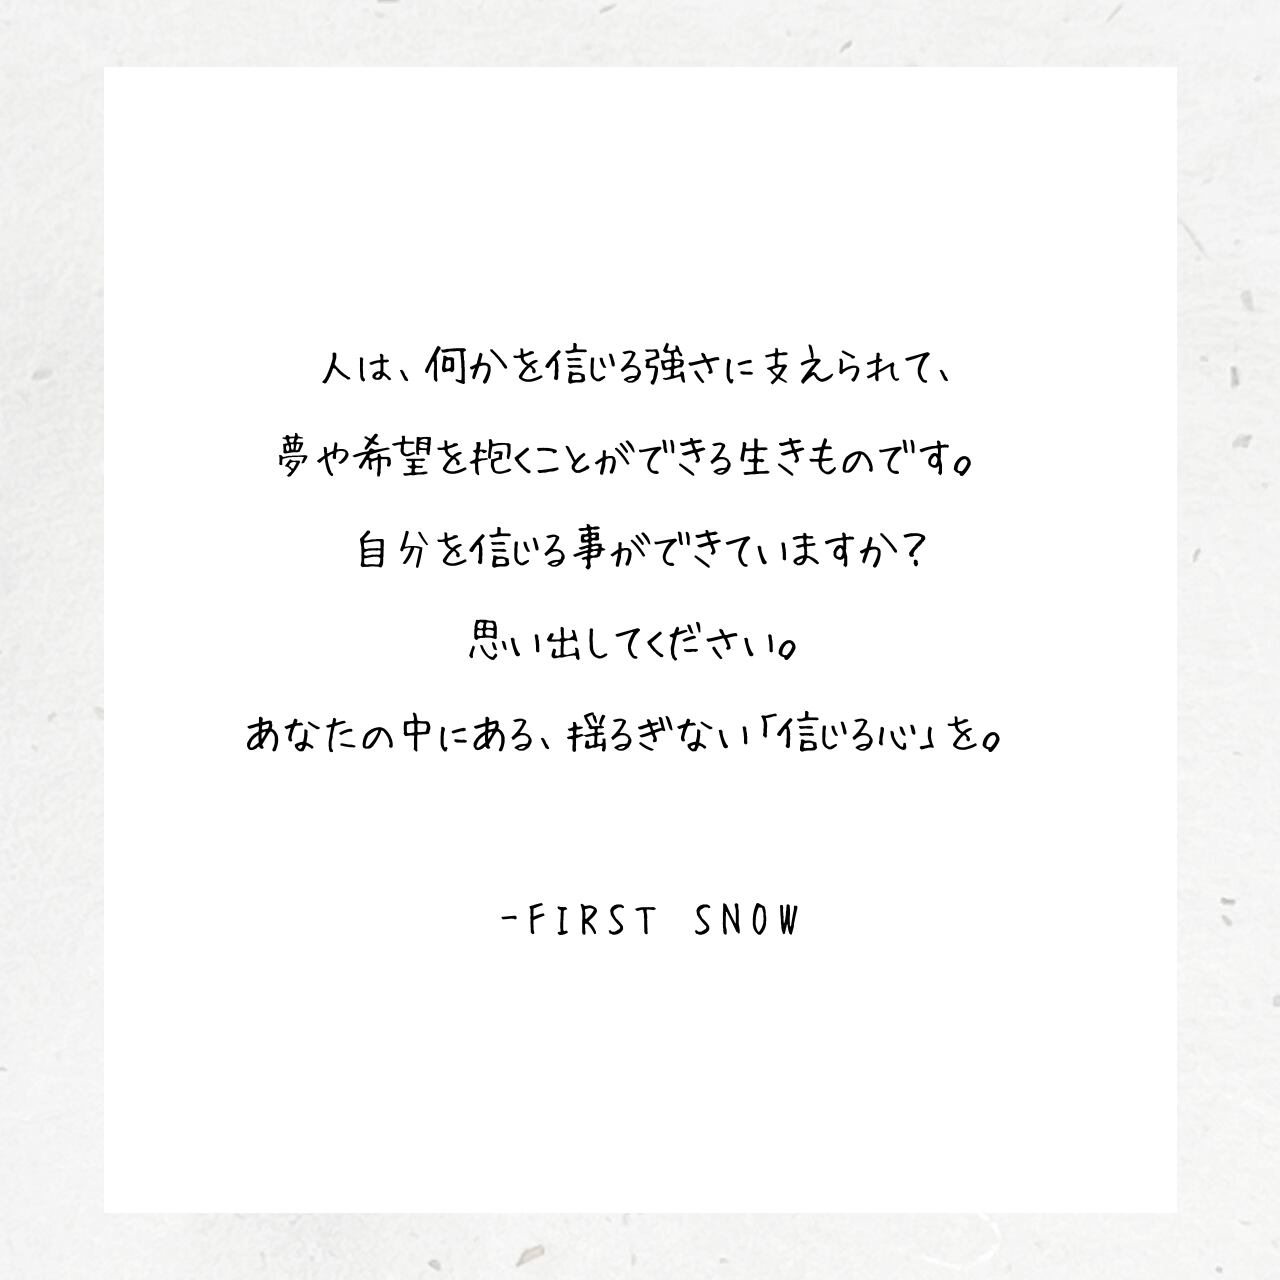 人は、何かを信じる強さに支えられて、
夢や希望を抱くことができる生きものです。
自分を信じる事ができていますか？
思い出してください。
あなたの中にある、揺るぎない「信じる心」を。
-FIRST SNOW